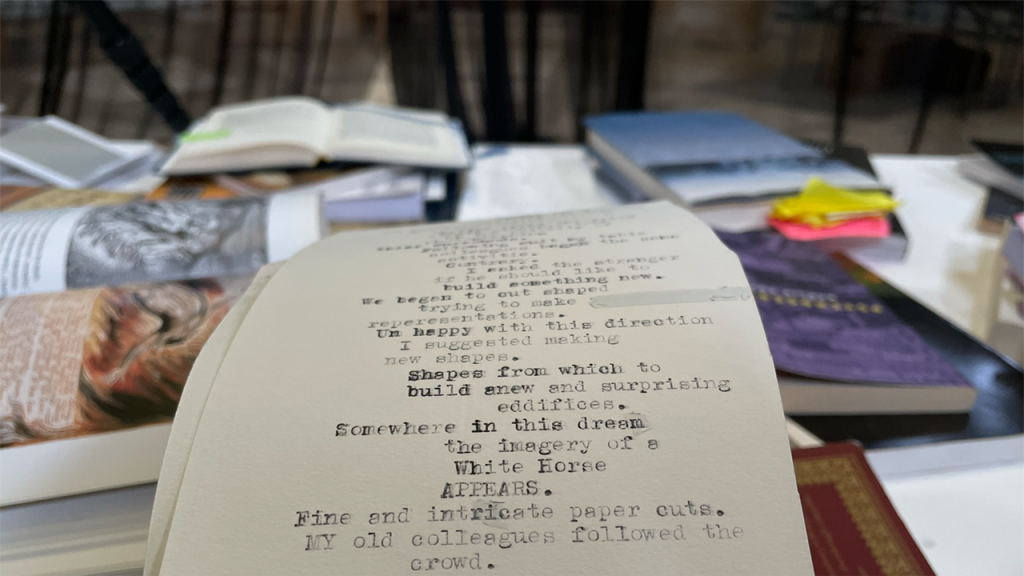 I asked the stronger
if he should like to
build something new.
We began to cut shaped
trying to make
reperesentations.
Un happy with this direction
I suggested making
new shapes.
Shapes from which to
build anew and surprising
eddifices.
Somewhere in this dream
the imagery of a
White Horse
APPEARS.
Fine and intricate paper cuts.
MY old colleagues followed the
crowd.